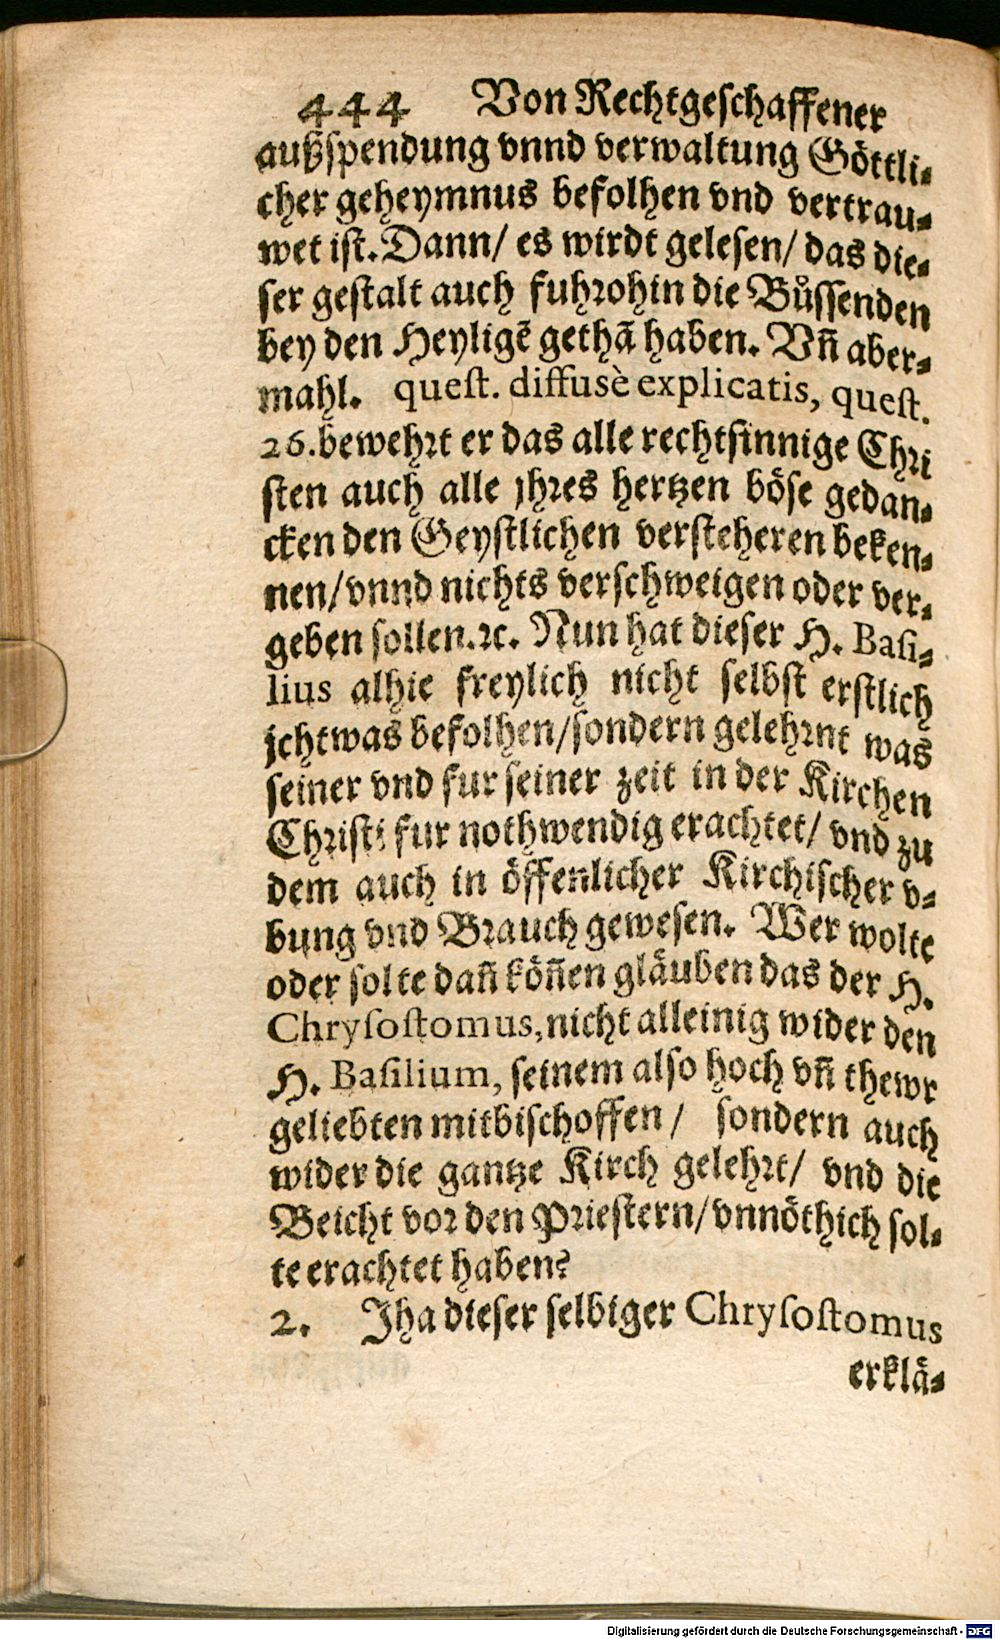 444 Von Rechtgeschaffener
außspendung vnnd verwaltung Göttli-
cher geheymnus befolhen vnd vertrau-
wet ist. Dann/ es wirdt gelesen/ das die-
ser gestalt auch fuhrohin die Bůssenden
bey den Heyligẽ gethã haben. Vñ aber-
mahl. quest. diffusè explicatis, quest.
26. bewehrt er das alle rechtsinnige Chri
sten auch alle jhres hertzen böse gedan-
cken den Geystlichen versteheren beken-
nen/ vnnd nichts verschweigen oder ver-
geben sollen. ꝛc. Nun hat dieser H. Basi-
lius alhie freylich nicht selbst erstlich
jchtwas befolhen/ sondern gelehrnt was
seiner vnd fur seiner zeit in der Kirchen
Christi fur nothwendig erachtet/ vnd zu
dem auch in öffenlicher Kirchischer v-
bung vnd Brauch gewesen. Wer wolte
oder solte dañ köñen gläuben das der H.
Chrysostomus, nicht alleinig wider den
H. Basilium, seinem also hoch vñ thewr
geliebten mitbischoffen/ sondern auch
wider die gantze Kirch gelehrt/ vnd die
Beicht vor den Priestern/ vnnöthich sol-
te erachtet haben?
2. Jha dieser selbiger Chrysostomus
erklä-
Digitalisierung gefördert durch die Deutsche Forschungsgemeinschaft - DFG